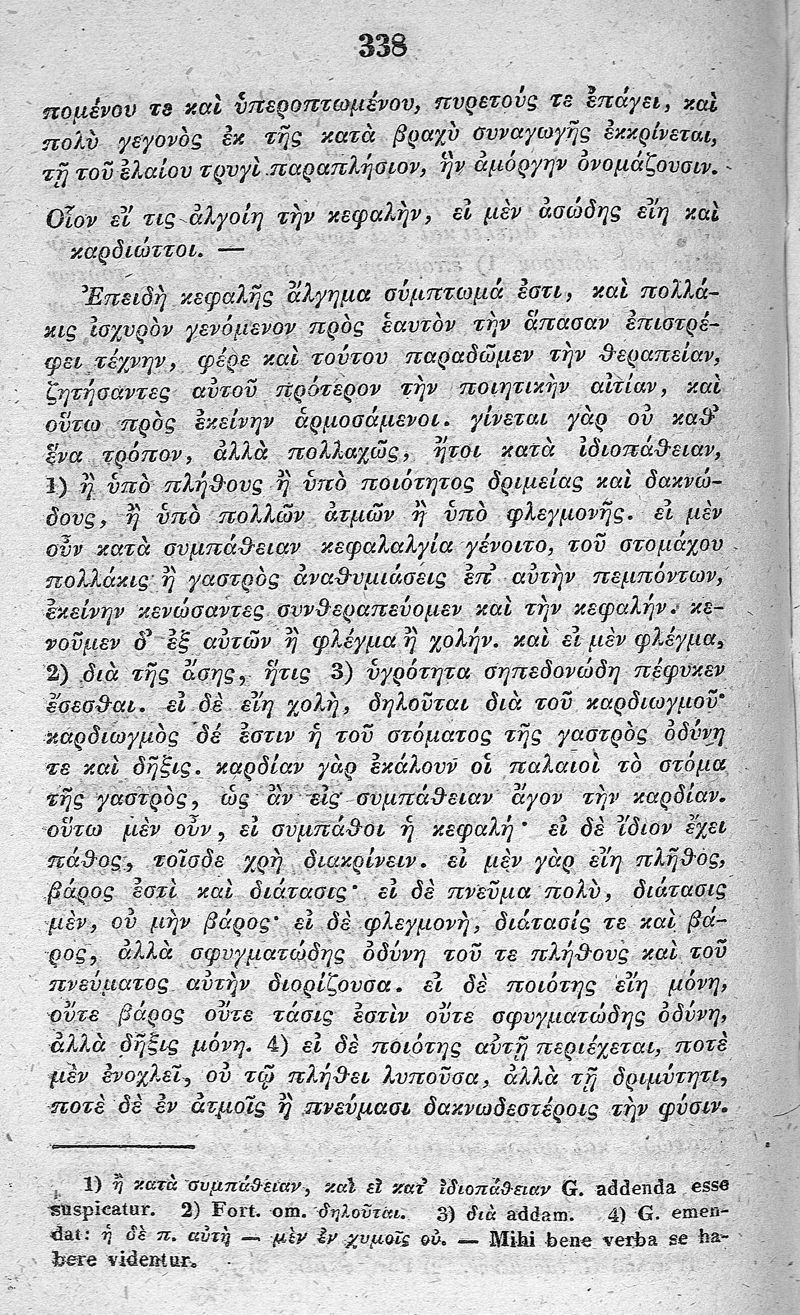 338
πομένου τε καὶ ὑπεροπτωμένου, πυρετούς τε ἐπάγει, καὶ
πολὺ γεγονὸς ἐκ τῆς κατὰ βραχὺ συναγωγῆς ἐκκρίνεται,
τῇ τοῦ ἐλαίου τρυγὶ παραπλήσιον, ἣν ἀμόργην ὀνομάζουσιν.
Οἷον εἴ τις ἀλγοίη τὴν κεφαλὴν, εἰ μὲν ἀσώδης εἴη καὶ
καρδιώττοι. —
Ἐπειδὴ κεφαλῆς ἄλγημα σύμπτωμά ἐστι, καὶ πολλά-
κις ἰσχυρὸν γενόμενον πρὸς ἑαυτὸν τὴν ἅπασαν ἐπιστρέ-
φει τέχνην, φέρε καὶ τούτου παραδῶμεν τὴν θεραπείαν,
ζητήσαντες αὐτοῦ πρότερον τὴν ποιητικὴν αἰτίαν, καὶ
οὕτω πρὸς ἐκείνην ἁρμοσάμενοι. γίνεται γὰρ οὐ καθ᾽
ἕνα τρόπον, ἀλλὰ πολλαχῶς, ἤτοι κατὰ ἰδιοπάθειαν,
1) ἢ ὑπὸ πλήθους ἢ ὑπὸ ποιότητος δριμείας καὶ δακνώ-
δους, ἢ ὑπὸ πολλῶν ἀτμῶν ἢ ὑπὸ φλεγμονῆς. εἰ μὲν
οὖν κατὰ συμπάθειαν κεφαλαλγία γένοιτο, τοῦ στομάχου
πολλάκις ἢ γαστρὸς ἀναθυμιάσεις ἐπ᾽ αὐτὴν πεμπόντων,
ἐκείνην κενώσαντες συνθεραπεύομεν καὶ τὴν κεφαλήν. κε-
νοῦμεν δ᾽ ἐξ αὐτῶν ἢ φλέγμα ἢ χολήν. καὶ εἰ μὲν φλέγμα,
2) διὰ τῆς ἄσης, ἥτις 3) ὑγρότητα σηπεδονώδη πέφυκεν
ἔσεσθαι. εἰ δὲ εἴη χολὴ, δηλοῦται διὰ τοῦ καρδιωγμοῦ·
καρδιωγμὸς δέ ἐστιν ἡ τοῦ στόματος τῆς γαστρὸς ὀδύνη
τε καὶ δῆξις. καρδίαν γὰρ ἐκάλουν οἱ παλαιοὶ τὸ στόμα
τῆς γαστρὸς, ὡς ἂν εἰς συμπάθειαν ἄγον τὴν καρδίαν.
οὕτω μὲν οὖν, εἰ συμπάθοι ἡ κεφαλή· εἰ δὲ ἴδιον ἔχει
πάθος, τοῖσδε χρὴ διακρίνειν. εἰ μὲν γὰρ εἴη πλῆθος,
βάρος ἐστὶ καὶ διάτασις· εἰ δὲ πνεῦμα πολὺ, διάτασις
μὲν, οὐ μὴν βάρος· εἰ δὲ φλεγμονὴ, διάτασίς τε καὶ βά-
ρος, ἀλλὰ σφυγματώδης ὀδύνη τοῦ τε πλήθους καὶ τοῦ
πνεύματος αὐτὴν διορίζουσα. εἰ δὲ ποιότης εἴη μόνη,
οὔτε βάρος οὔτε τάσις ἐστὶν οὔτε σφυγματώδης ὀδύνη,
ἀλλὰ δῆξις μόνη. 4) εἰ δὲ ποιότης αὐτῇ περιέχεται, ποτὲ
μὲν ἐνοχλεῖ, οὐ τῷ πλήθει λυποῦσα, ἀλλὰ τῇ δριμύτητι,
ποτὲ δὲ ἐν ἀτμοῖς ἢ πνεύμασι δακνωδεστέροις τὴν φύσιν.
1) ἢ κατὰ συμπάθειαν, καὶ εἰ κατ᾽ ἰδιοπάθειαν G. addenda esse
suspicatur. 2) Fort. om. δηλοῦται. 3) διὰ addam. 4) G. emen-
dat: ἡ δὲ π. αὐτὴ — μὲν ἐν χυμοῖς οὐ. — Mihi bene verba se ha-
bere videntur.